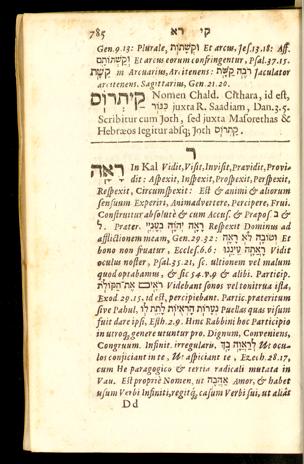 785 קי רא
Gen. 9.13: Plurale, וְקַשְּׁתוֹת Et arcus, Jes. 13.18: Aff.
וְקַשְּׁתוֹתָם Et arcus eorum confringentur, Psal. 37.15.
קַשָּׁת m Arcuarius, Arcitenens: רֹבֶה קַשָּׁת Jaculator
arcitenens. Sagittarius, Gen. 21.20.
קַיתְרוֹס Nomen Chald. Cithara, id est,
כִּנּוֹר juxta R. Saadiam, Dan. 3. 5.
Scribitur cum Joth, sed juxta Masorethas &
Hebræos legitur absq; Joth קַתְרוֹס.
ר
רָאָה In Kal Vidit, Visit, Invisit, Prævidit, Provi-
dit: Aspexit, Inspexit, Prospexit, Perspexit,
Respexit, Circumspexit: Est & animi & aliorum
sensuum Experiri, Animadvertere, Percipere, Frui.
Construitur absolutè & cum Accus. & Præpos. ב &
ל. Præter. רָאָה יְהוָֹה בְּעָנְיִי Respexit Dominus ad
afflictionem meam, Gen. 29.32: וְטוֹבָה לֹא רָאָה Et
bono non fruatur. Eccles. 6.6: רָאֲתָה עֵינֵנוּ Vidit
oculus noster, Psal. 35.21, sc. ultionem vel malum
quod optabamus, & sic 54. v. 9 & alibi. Particip.
רֹאִים אֶת הַקּוֹלֹת Videbant sonos vel tonitrua ista,
Exod. 20.15. id est, percipiebant. Partic. præteritum
sive Pahul, נְעָרוֹת הָרְאֻיוֹת לָתֶת לוֹ Puellas quas visum
fuit dare ipsi, Esth. 2.9. Hinc Rabbini hoc Participio
in utroq; genere utuntur pro. Dignum, Conveniens,
Congruum. Infinit. irregulare, לְרַאֲוָה בָךְ Ut ocu-
los conjiciant in te, Ut aspiciant te, Ezech. 28.17,
cum He paragogico & tertia radicali mutata in
Vau. Est propriè Nomen, ut אַהֲבָה Amor, & habet
usum Verbi Infiniti, regitq; casum Verbi sui, ut aliàs
Dd